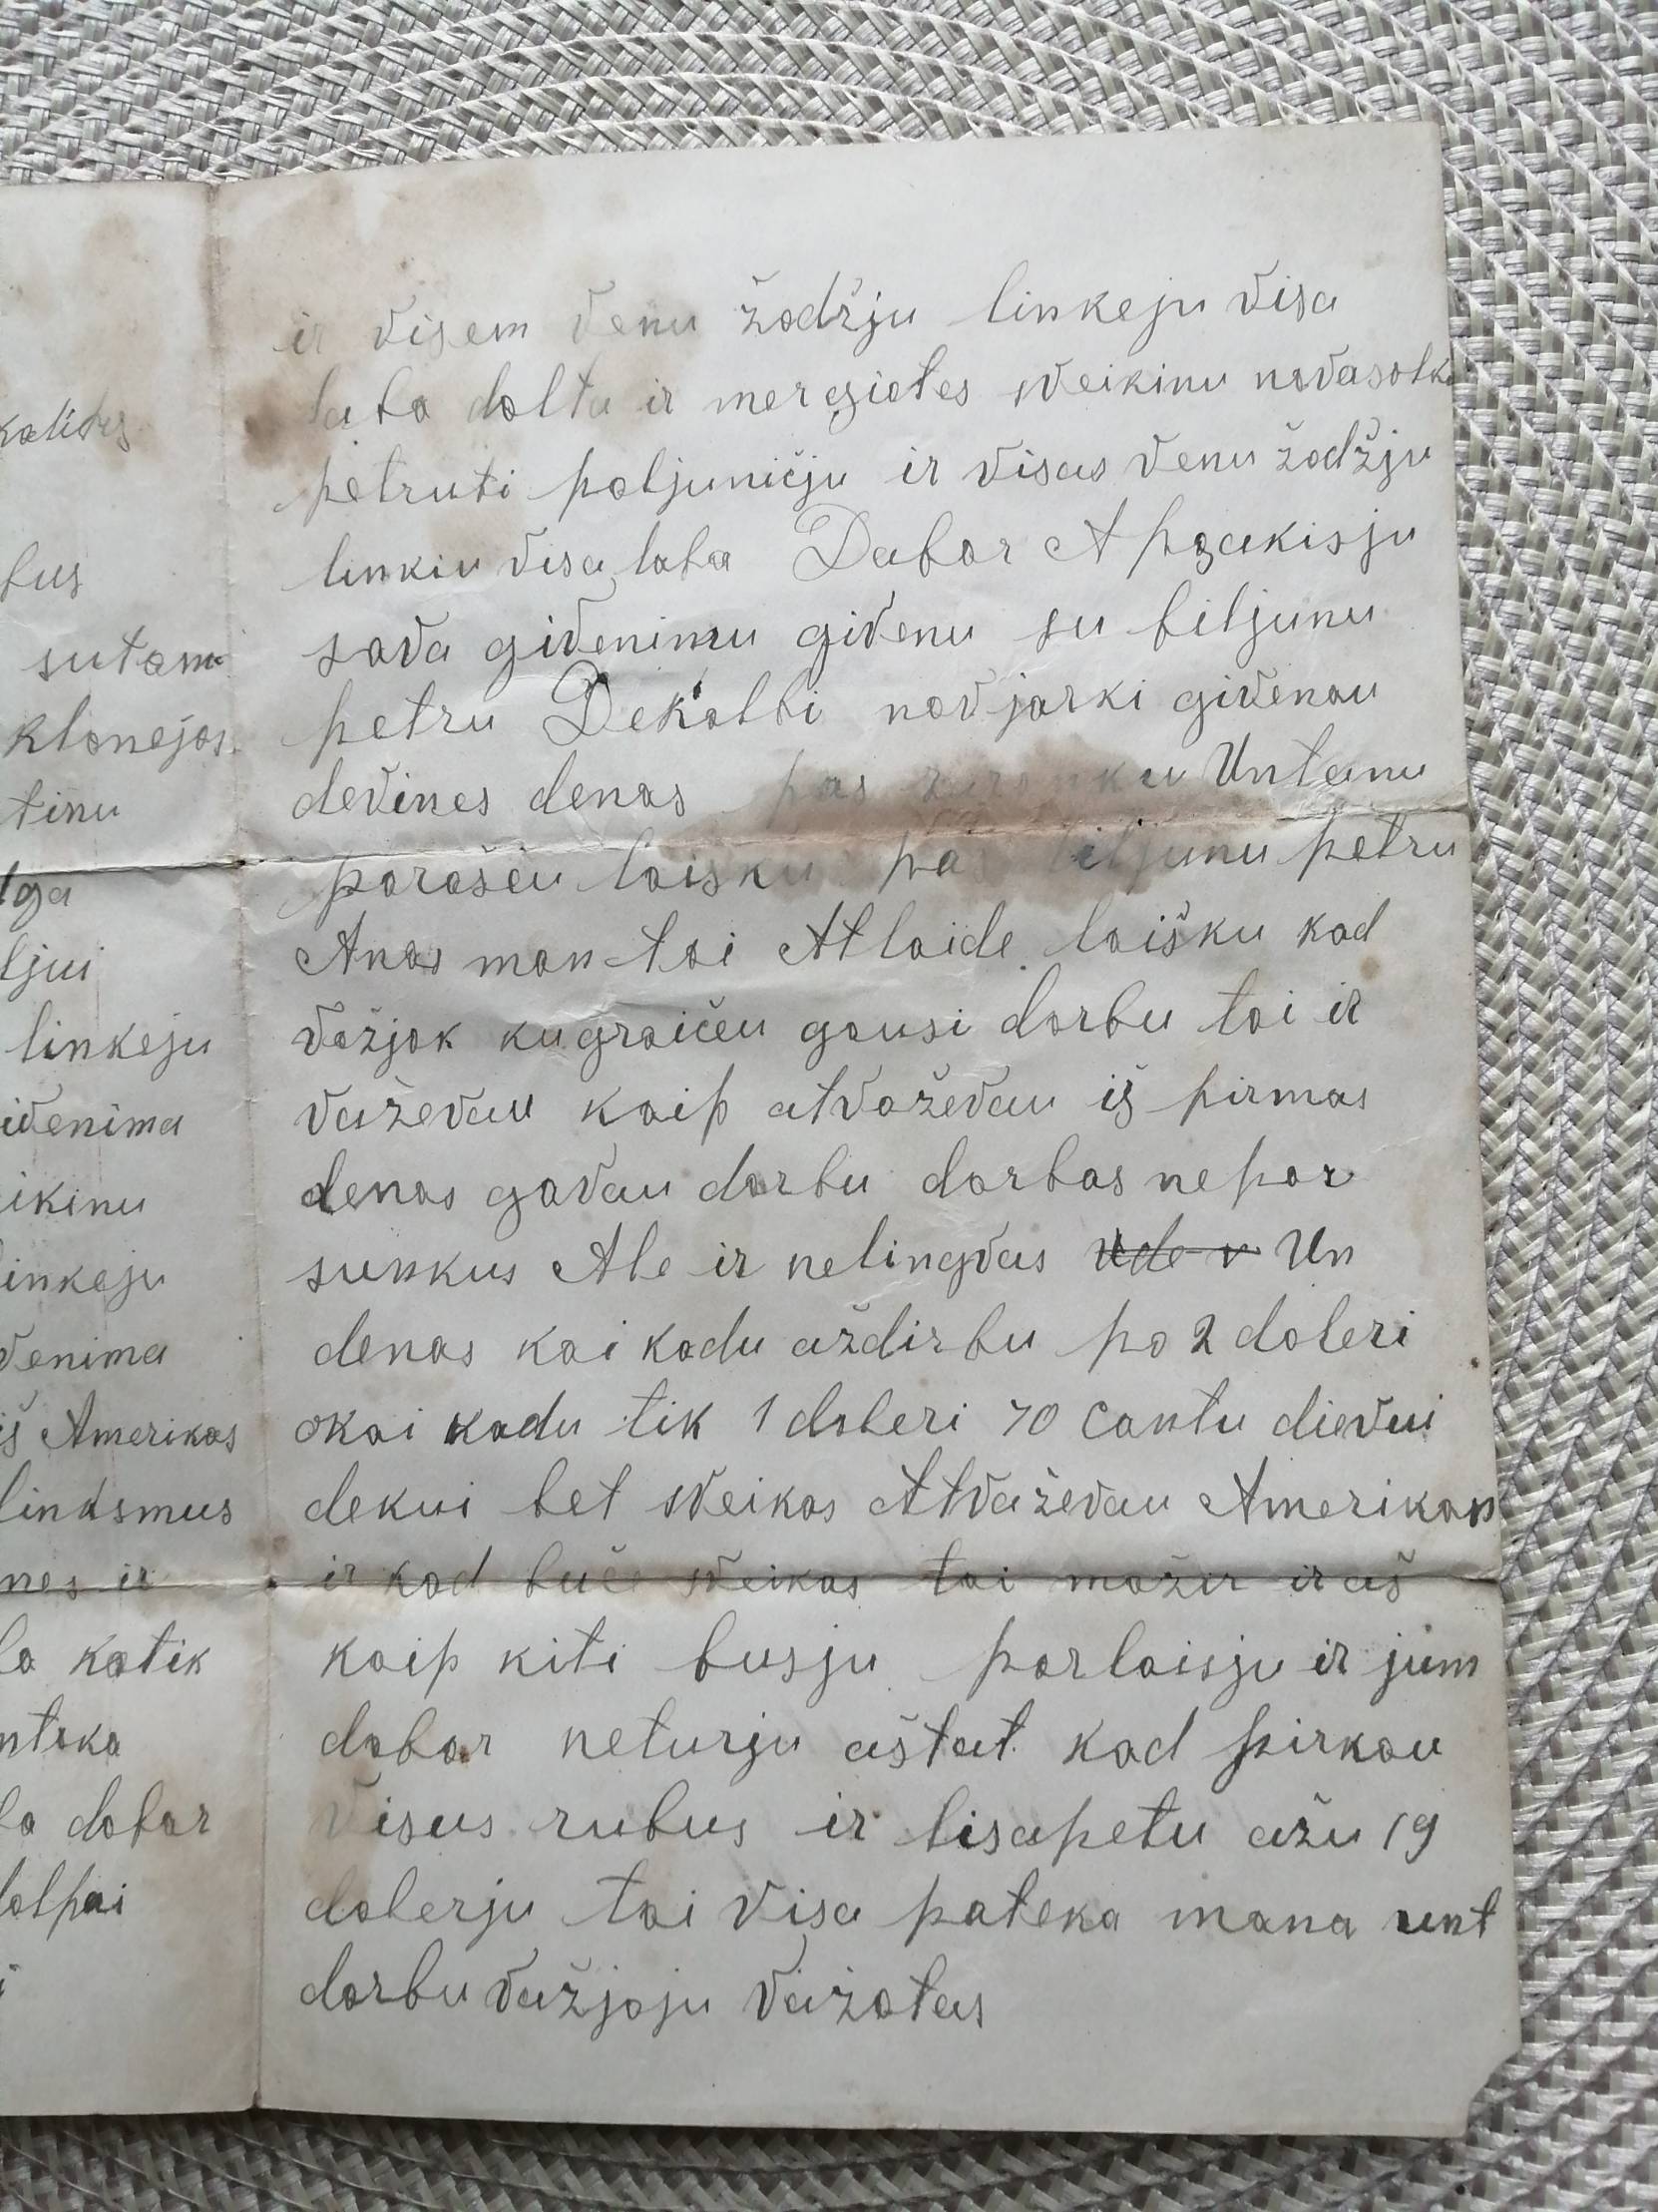 kalitus
bus
sutam
klonejas
tinu
lga
ljui
linkeju
ivenima
ikinu
inkeju
venima
iš Amerikas
linksmus
nes ir
la katik
ntaka
la dabar
lalpai
ir visem venu žodžju linkeju visa
laba dalta ir mergiotes sveikinu
petruti poljuničju ir visas venu žodžju
linkiu visa laba Dabar Apsakisju
sava givenimu givenu su biljunu
petru Dekalbi novjarki givenau
devines denas pas Untanu
parašeu laisku pas biljunu petru
Anas man tai Atlaide laišku kad
važjak ku graičeu gausi darbu tai ir
važevau kaip atvaževau iš pirmas
denas gavau darbu darbas nepar
sunkus Ale ir nelingvas Un
denas kai kadu aždirbu po 2 doleri
okai kadu tik 1 doleri 70 cantu dievui
dekui bet sveikas Atvaževau Amerikan
ir kad buče sveikas tai mažir ir aš
kaip kiti busju parlaisju ir jum
dabar neturju aštat kad pirkau
visus rubus ir lisapetu ažu 19
dolerju tai visa pateka mana unt
darbu važjaju važotas